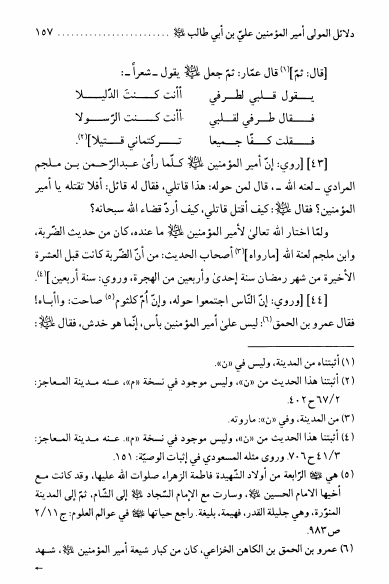 دلائل المولى أمير المؤمنين عليّ بن أبي طالب ﷷ ........................ ١٥٧
[قال: ثمّ](١) قال عمّار: ثمّ جعل ﷷ يقول ـ شعراً ـ:
يــقول قــلبي لطــرفي أأنت كــنتَ الدّليــلا
فــقال طــرفي لقــلبي أأنت كــنت الرّســولا
فــقلت كــفّا جــميعا تــركتماني قــتيلا](٢).
[٤٣] [روي: إنّ أمير المؤمنين ﷷ كـلّما رأى عبدالرحمن بـن مـلجم
المرادي ـ لعنه الله ـ، قال لمن حوله: هذا قاتلي، فقال له قائل: أفلا تقتله يا أمير
المؤمنين؟ فقال ﷷ: كيف أقتل قاتلي، كيف أردّ قضاء الله سبحانه؟
ولمّا اختار الله تعالى لأمير المؤمنين ﷷ ما عنده، كان من حديث الضّربة،
وابن ملجم لعنه الله [مارواه](٣) أصحاب الحديث: من أنّ الضّربة كانت قبل العشرة
الأخيرة من شهر رمضان سنة إحدىٰ وأربعين من الهجرة، وروي: سنة أربعين](٤).
[٤٤] [وروي: إنّ النّاس اجتمعوا حوله، وإنّ أُمّ كلثوم(٥) صاحت: واأباه!
فقال عمرو بن الحمق(٦): ليس علىٰ أمير المؤمنين بأس، إنّما هو خدش، فقال ﷷ:
(١) أثبتناه من المدينة، وليس في «ن».
(٢) أثبتنا هذا الحديث من «ن»، وليس موجود في نسخة «م»، عـنه مـدينة المـعاجز:
٦٧/٢ ح٤٠٢.
(٣) من المدينة، وفي «ن»: ماروته.
(٤) أثبتنا هذا الحديث من «ن»، وليس موجود في نسخة «م». عـنه مدينة المـعاجز:
٤١/٣ ح٧٠٦. وروى مثله المسعودي في إثبات الوصيّة: ١٥١.
(٥) هي ﷷ الرّابعة من أولاد الشّهيدة فاطمة الزهراء صلوات الله عليها، وقد كانت مع
أخيها الامام الحسين ﷷ، وسارت مع الإمام السجّاد ﷷ إلى الشّام، ثمّ إلى المدينة
المنوّرة، وهي جليلة القدر، فهيمة، بليغة. راجع حياتها ﷷ في عوالم العلوم: ج٢/١١
ص٩٨٣.
(٦) عمرو بن الحمق بن الكاهن الخزاعي، كان من كبار شيعة أمير المؤمنين ﷷ، شـهد
←